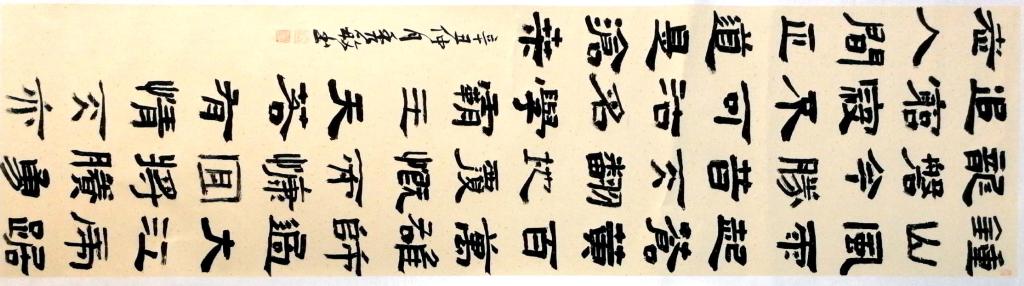 鍾山風雨起蒼黃百萬雄師過大江虎踞
龍盤今勝昔天翻地覆慨而慷宜將賸勇
追窮寇不可沽名學霸王天若有情天亦
老人間正道是滄桑
辛丑仲月